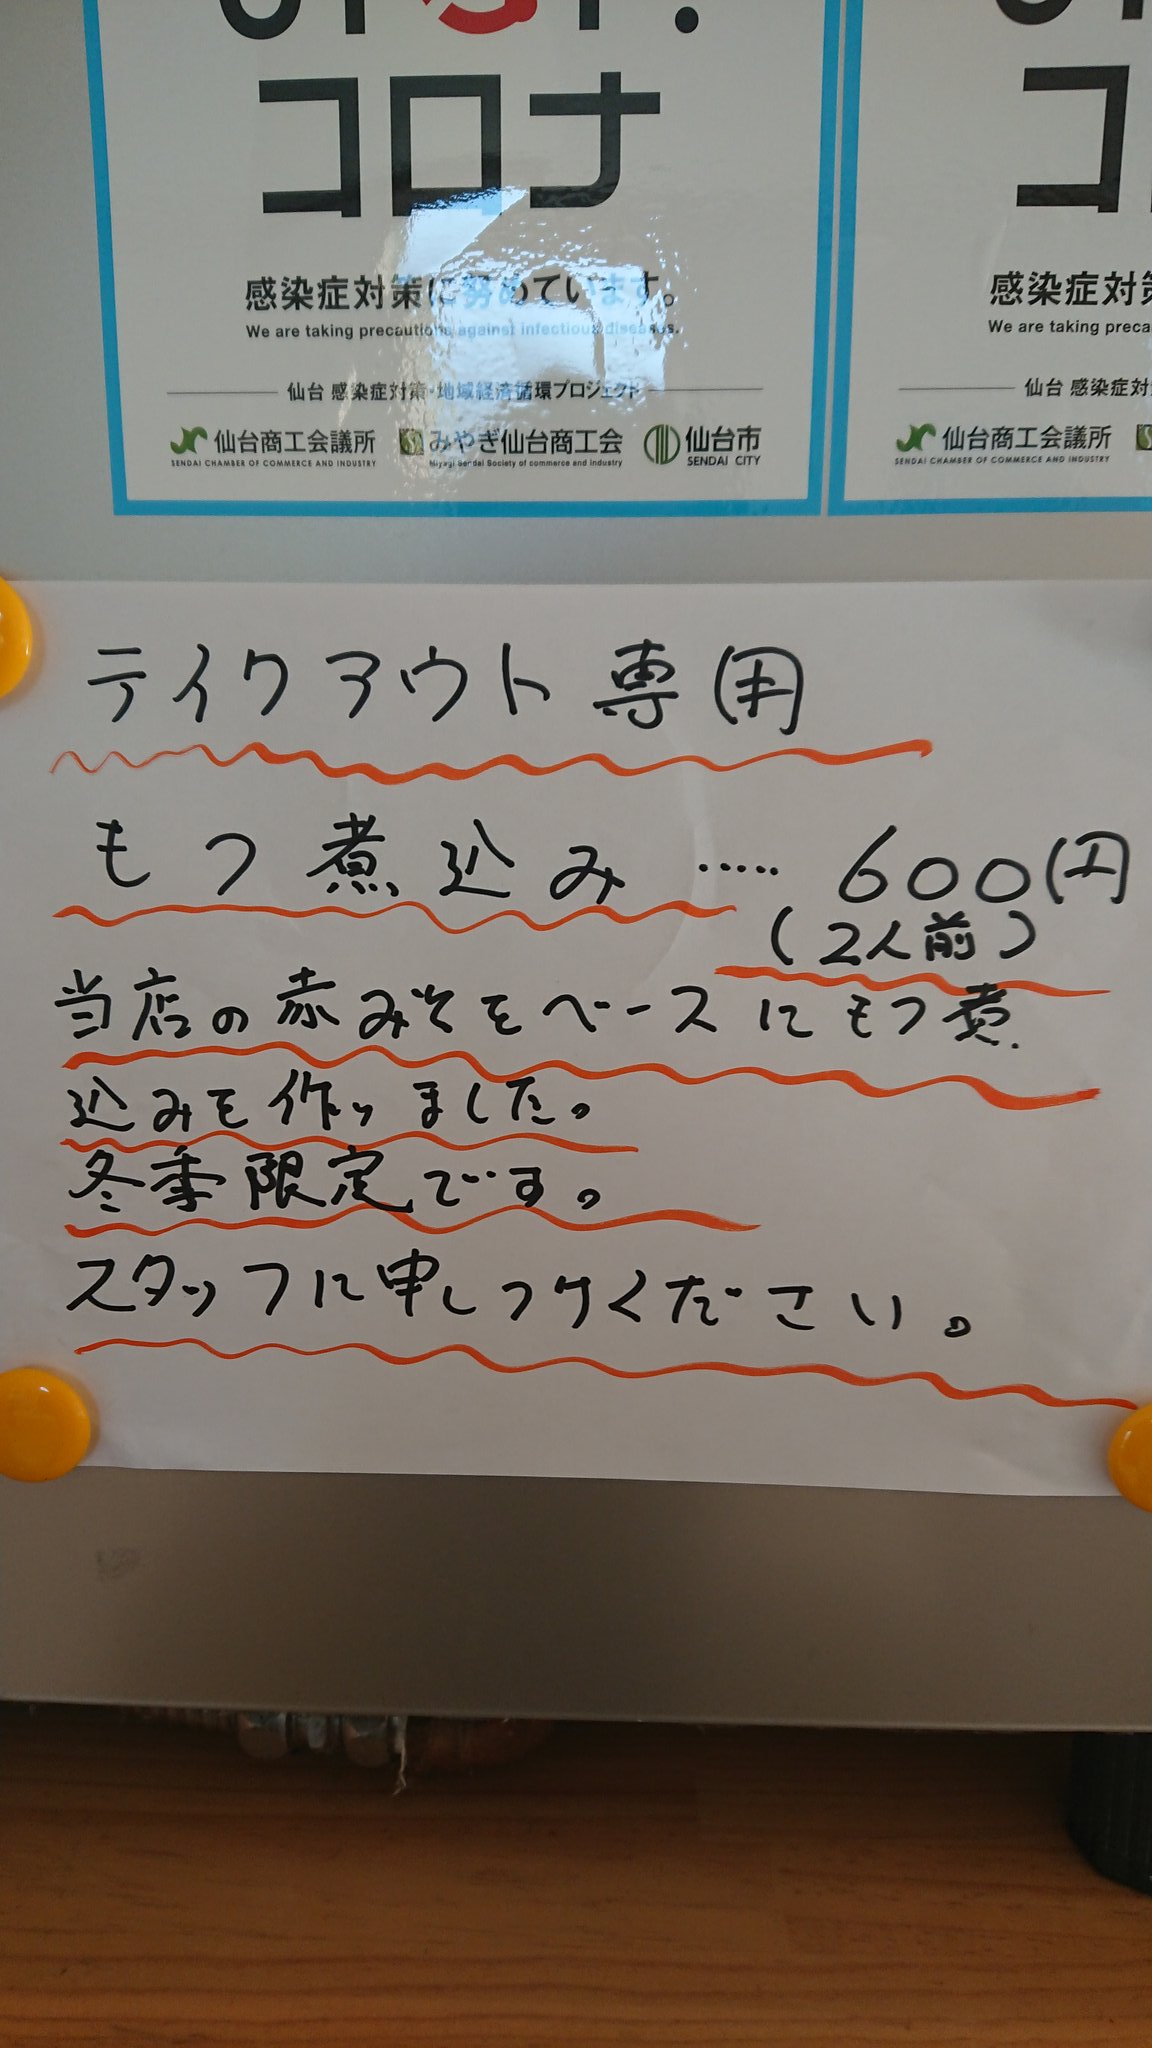 コロナ
感染症対策に努めています。
We are taking precautions against infectious diseases.
仙台 感染症対策・地域経済循環プロジェクト
仙台商工会議所
SENDAI CHAMBER OF COMMERCE AND INDUSTRY
みやぎ仙台商工会
Miyagi Sendai Society of commerce and industry
仙台市
SENDAI CITY
コ
感染症対
We are taking preca
仙台 感染症対
仙台商工会議所
SENDAI CHAMBER OF COMMERCE AND INDUSTRY
テイクアウト専用
もつ煮込み ····· 600円
(2人前)
当店の赤みそをベースにもつ煮
込みを作りました。
冬季限定です。
スタッフに申しつけください。